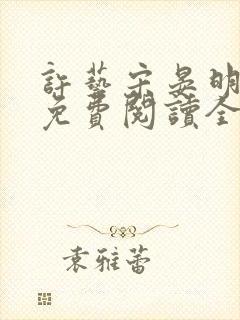 許藝宋晏明
免費閱讀全
袁雅蕾